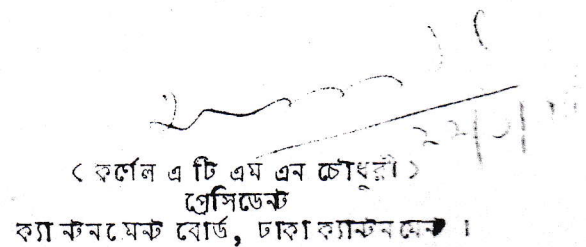 ( কর্ণেল এ টি এম এন চৌধুরী )
প্রেসিডেন্ট
ক্যান্টনমেন্ট বোর্ড, ঢাকা ক্যান্টনমেন্ট ।